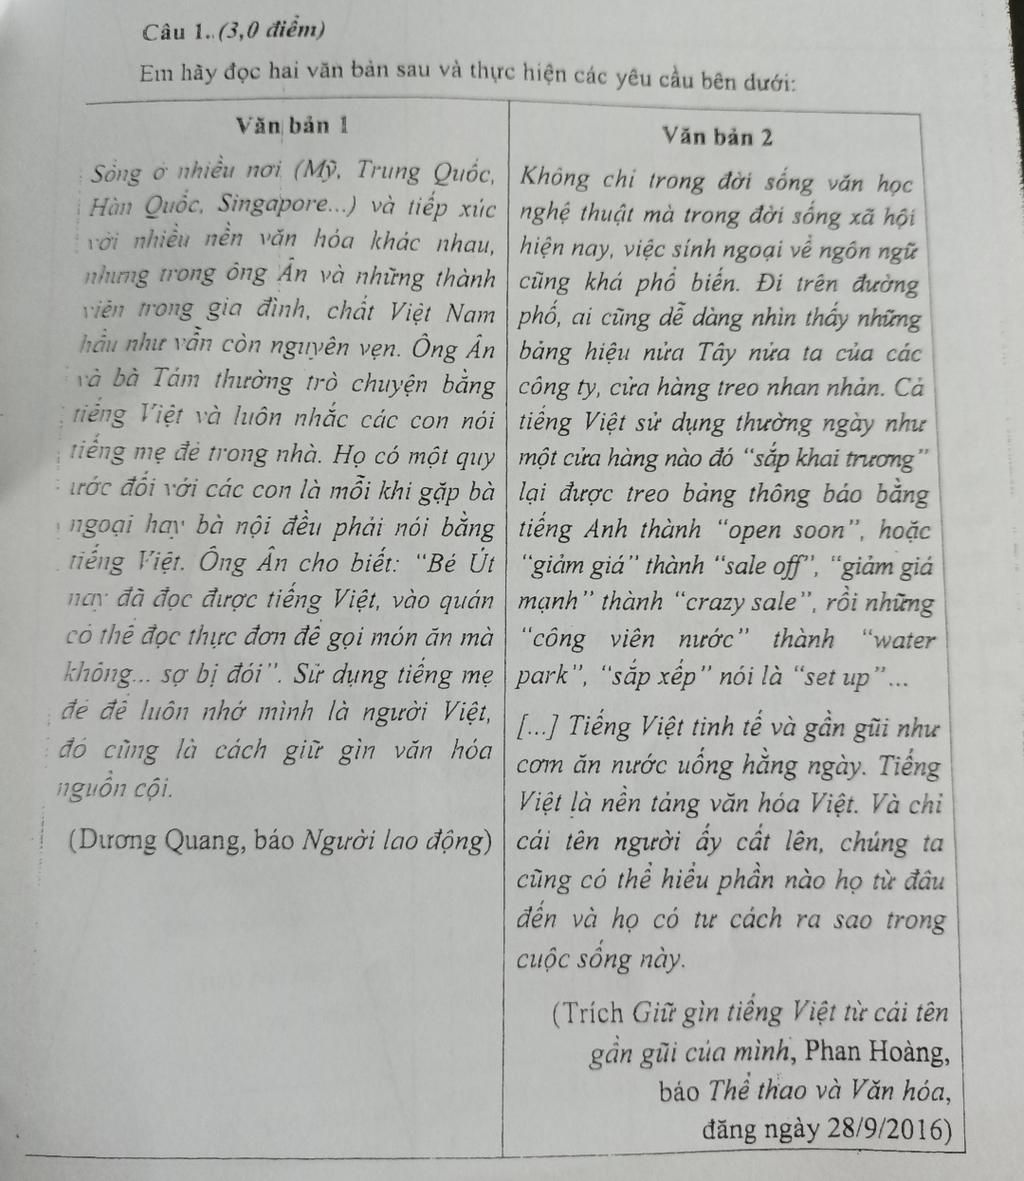 Câu 1. (3,0 điểm)
Em hãy đọc hai văn bản sau và thực hiện các yêu cầu bên dưới:
Văn bản 1
Sống ở nhiều nơi (Mỹ, Trung Quốc,
Hàn Quốc, Singapore...) và tiếp xúc
với nhiều nền văn hóa khác nhau,
nhưng trong ông Ân và những thành
viên trong gia đình, chất Việt Nam
hầu như vẫn còn nguyên vẹn. Ông Ân
và bà Tám thường trò chuyện bằng
tiếng Việt và luôn nhắc các con nói
tiếng mẹ đẻ trong nhà. Họ có một quy
ước đối với các con là mỗi khi gặp bà
ngoại hay bà nội đều phải nói bằng
tiếng Việt. Ông Ân cho biết: “Bé Út
nay đã đọc được tiếng Việt, vào quán
có thể đọc thực đơn để gọi món ăn mà
không... sợ bị đói”. Sử dụng tiếng mẹ
đẻ để luôn nhớ mình là người Việt,
đó cũng là cách giữ gìn văn hóa
nguồn cội.
(Dương Quang, báo Người lao động)
Văn bản 2
Không chỉ trong đời sống văn học
nghệ thuật mà trong đời sống xã hội
hiện nay, việc sính ngoại về ngôn ngữ
cũng khá phổ biến. Đi trên đường
phố, ai cũng dễ dàng nhìn thấy những
bảng hiệu nửa Tây nửa ta của các
công ty, cửa hàng treo nhan nhản. Cả
tiếng Việt sử dụng thường ngày như
một cửa hàng nào đó “sắp khai trương”
lại được treo bảng thông báo bằng
tiếng Anh thành “open soon”, hoặc
“giảm giá” thành “sale off”, “giảm giá
mạnh” thành “crazy sale”, rồi những
“công viên nước” thành “water
park”, “sắp xếp” nói là “set up”...
[...] Tiếng Việt tinh tế và gần gũi như
cơm ăn nước uống hằng ngày. Tiếng
Việt là nền tảng văn hóa Việt. Và chỉ
cái tên người ấy cất lên, chúng ta
cũng có thể hiểu phần nào họ từ đâu
đến và họ có tư cách ra sao trong
cuộc sống này.
(Trích Giữ gìn tiếng Việt từ cái tên
gần gũi của mình, Phan Hoàng,
báo Thể thao và Văn hóa,
đăng ngày 28/9/2016)